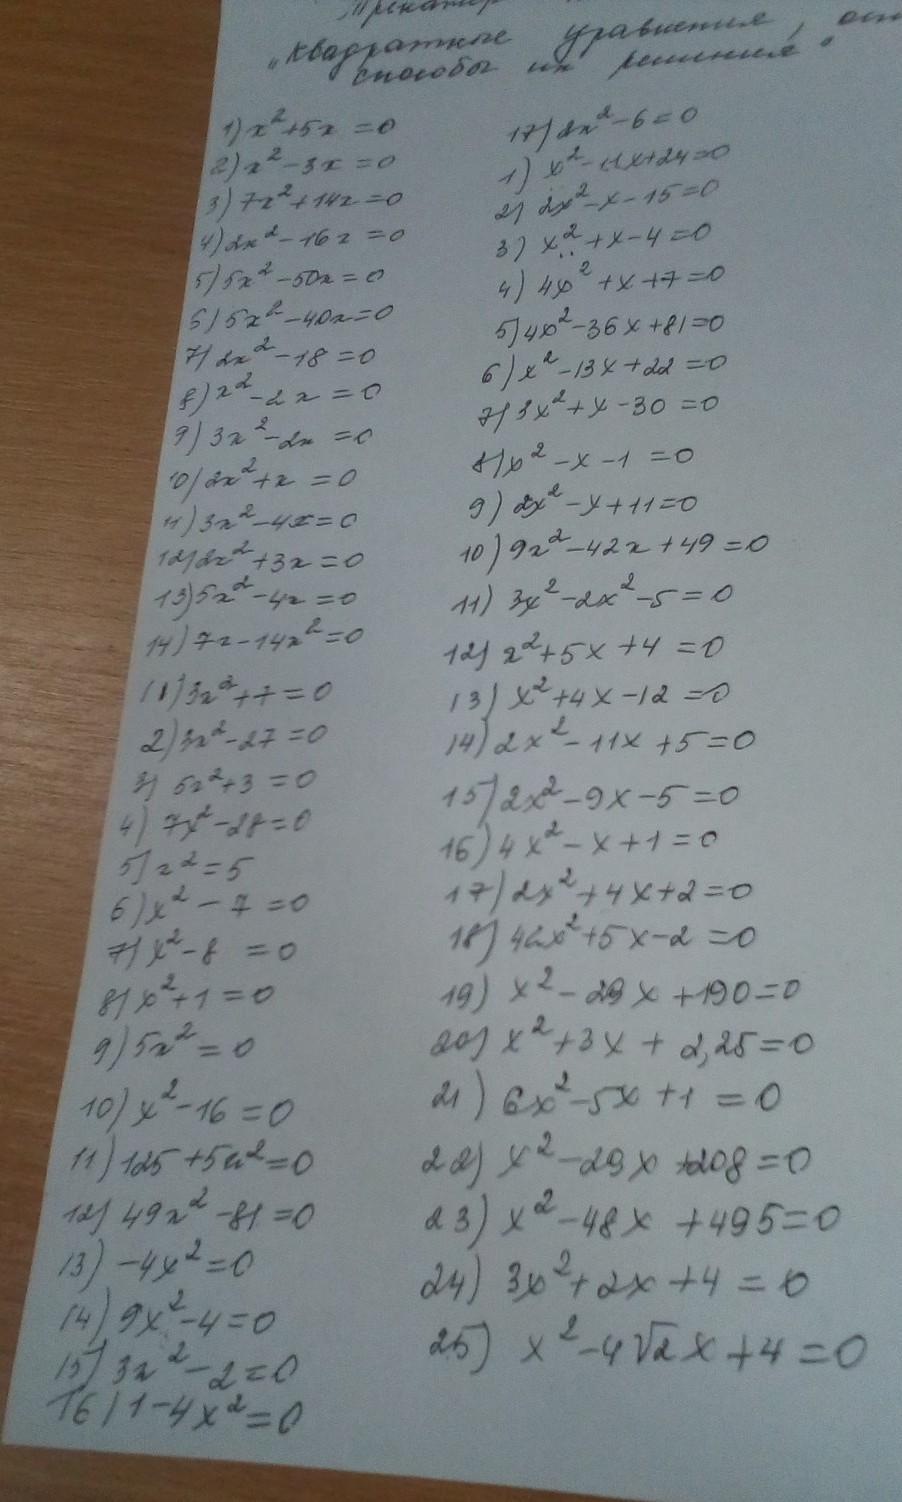 „Тренажер
„Квадратные уравнения,
способы их решения"
1) x² + 5x = 0
2) x² - 3x = 0
3) 7x² + 14x = 0
4) 2x² - 16x = 0
5) 5x² - 50x = 0
6) 5x² - 40x = 0
7) 2x² - 18 = 0
8) x² - 2x = 0
9) 3x² - 2x = 0
10) 2x² + x = 0
11) 3x² - 4x = 0
12) 2x² + 3x = 0
13) 5x² - 4x = 0
14) 7x - 14x² = 0
1) 3x² + 7 = 0
2) 3x² - 27 = 0
3) 5x² + 3 = 0
4) 7x² - 28 = 0
5) x² = 5
6) x² - 7 = 0
7) x² - 8 = 0
8) x² + 1 = 0
9) 5x² = 0
10) x² - 16 = 0
11) 125 + 5x² = 0
12) 49x² - 81 = 0
13) -4x² = 0
14) 9x² - 4 = 0
15) 3x² - 2 = 0
16) 1 - 4x² = 0
17) 2x² - 6 = 0
1) x² - 11x + 24 = 0
2) 2x² - x - 15 = 0
3) x² + x - 4 = 0
4) 4x² + x + 7 = 0
5) 4x² - 36x + 81 = 0
6) x² - 13x + 22 = 0
7) 3x² + x - 30 = 0
8) x² - x - 1 = 0
9) 2x² - x + 11 = 0
10) 9x² - 42x + 49 = 0
11) 3x² - 2x² - 5 = 0
12) x² + 5x + 4 = 0
13) x² + 4x - 12 = 0
14) 2x² - 11x + 5 = 0
15) 2x² - 9x - 5 = 0
16) 4x² - x + 1 = 0
17) 2x² + 4x + 2 = 0
18) 42x² + 5x - 2 = 0
19) x² - 29x + 190 = 0
20) x² + 3x + 2,25 = 0
21) 6x² - 5x + 1 = 0
22) x² - 29x + 208 = 0
23) x² - 48x + 495 = 0
24) 3x² + 2x + 4 = 0
25) x² - 4√2x + 4 = 0